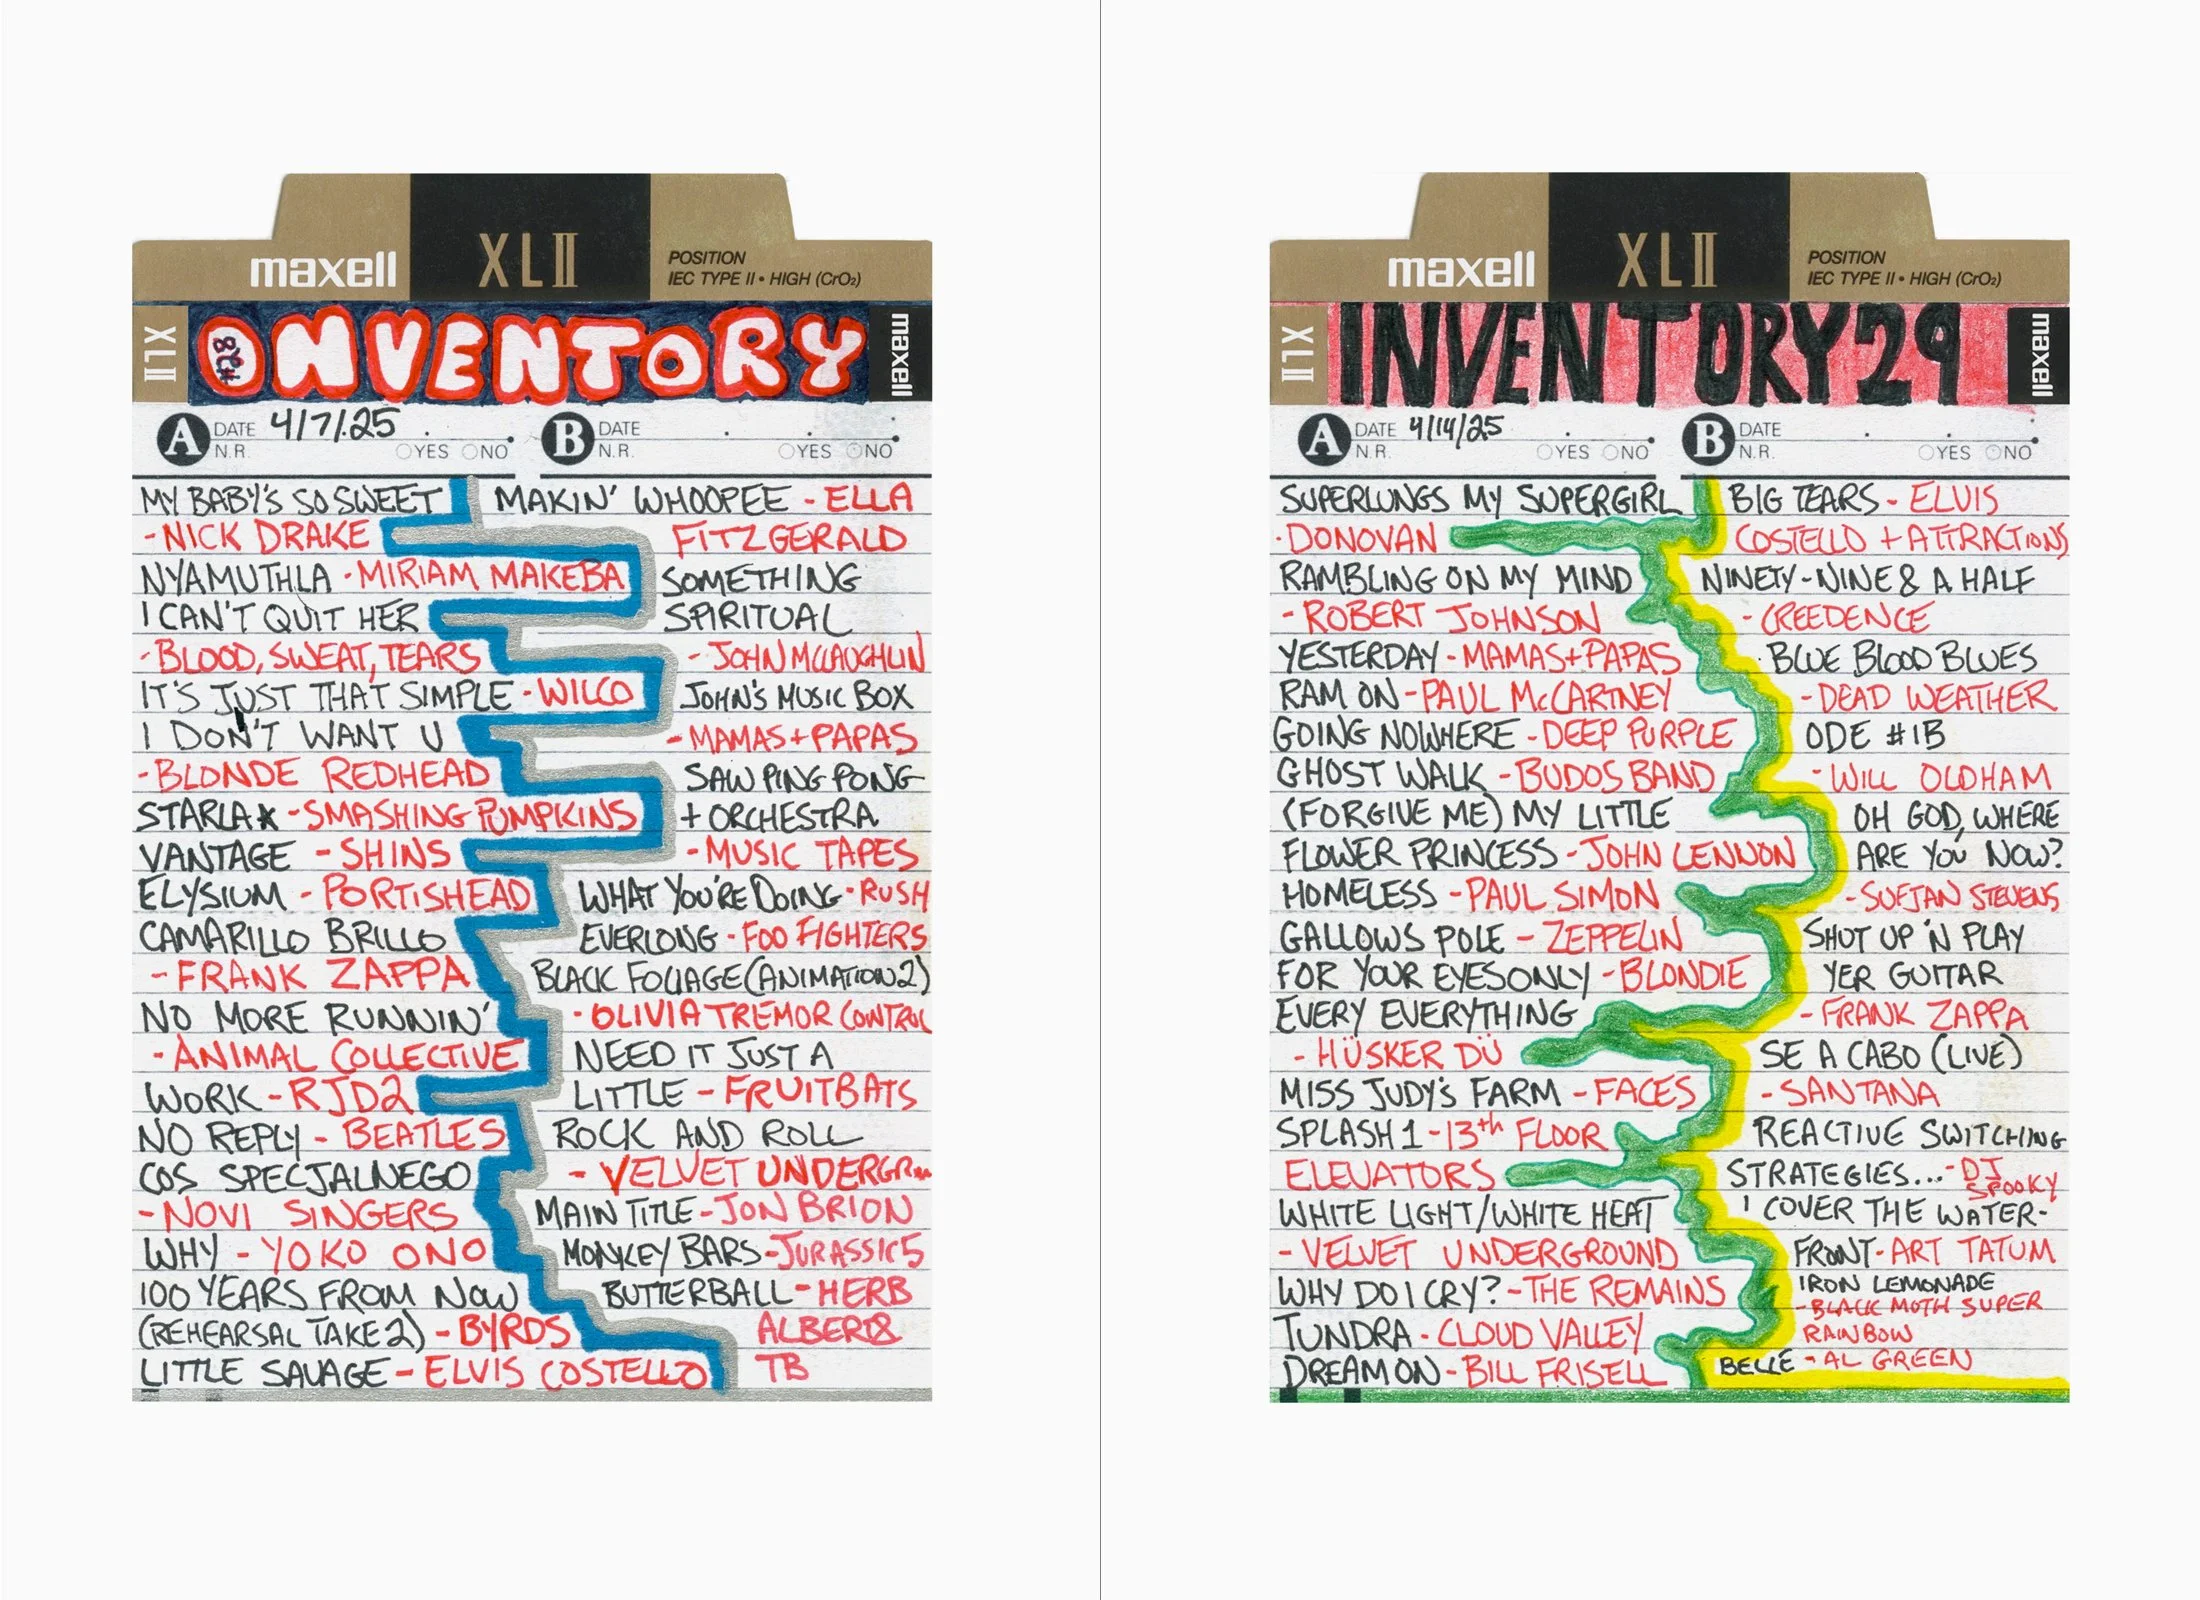 maxell XLII POSITION
IEC TYPE II • HIGH (CrO₂)
XLII INVENTORY maxell
A DATE 4/7/.25
N.R. YES NO
B DATE
N.R. YES NO
MY BABY'S SO SWEET
-NICK DRAKE
NYAMUTHLA -MIRIAM MAKEBA
I CAN'T QUIT HER
-BLOOD, SWEAT, TEARS
IT'S JUST THAT SIMPLE -WILCO
I DON'T WANT U
-BLONDE REDHEAD
STARLA* -SMASHING PUMPKINS
VANTAGE -SHINS
ELYSIUM -PORTISHEAD
CAMARILLO BRILLO
-FRANK ZAPPA
NO MORE RUNNIN'
-ANIMAL COLLECTIVE
WORK -RJD2
NO REPLY -BEATLES
COS SPECJALNEGO
-NOVI SINGERS
WHY -YOKO ONO
100 YEARS FROM NOW
(REHEARSAL TAKE 2) -BYRDS
LITTLE SAVAGE -ELVIS COSTELLO
MAKIN' WHOOPEE -ELLA
FITZGERALD
SOMETHING
SPIRITUAL
-JOHN MCLAUGHLIN
JOHN'S MUSIC BOX
-MAMAS+PAPAS
SAW PING PONG
+ ORCHESTRA
-MUSIC TAPES
WHAT YOU'RE DOING -RUSH
EVERLONG -FOO FIGHTERS
BLACK FOLIAGE (ANIMATION 2)
-OLIVIA TREMOR CONTROL
NEED IT JUST A
LITTLE -FRUITBATS
ROCK AND ROLL
-VELVET UNDERGR
MAIN TITLE -JON BRION
MONKEY BARS -JURASSIC 5
BUTTERBALL -HERB
ALBERT &
TB
maxell XLII POSITION
IEC TYPE II • HIGH (CrO₂)
XLII INVENTORY 29 maxell
A DATE 4/14/25
N.R. YES NO
B DATE
N.R. YES NO
SUPERLUNGS MY SUPERGIRL
-DONOVAN
RAMBLING ON MY MIND
-ROBERT JOHNSON
YESTERDAY -MAMAS+PAPAS
RAM ON -PAUL McCARTNEY
GOING NOWHERE -DEEP PURPLE
GHOST WALK -BUDOS BAND
(FORGIVE ME) MY LITTLE
FLOWER PRINCESS -JOHN LENNON
HOMELESS -PAUL SIMON
GALLOWS POLE -ZEPPELIN
FOR YOUR EYES ONLY -BLONDIE
EVERY EVERYTHING
-HÜSKER DÜ
MISS JUDY'S FARM -FACES
SPLASH 1 -13th FLOOR
ELEVATORS
WHITE LIGHT/WHITE HEAT
-VELVET UNDERGROUND
WHY DO I CRY? -THE REMAINS
TUNDRA -CLOUD VALLEY
DREAM ON -BILL FRISELL
BIG TEARS -ELVIS
COSTELLO + ATTRACTIONS
NINETY-NINE & A HALF
-CREEDENCE
BLUE BLOOD BLUES
-DEAD WEATHER
ODE #1B
-WILL OLDHAM
OH GOD, WHERE
ARE YOU NOW?
-SUFJAN STEVENS
SHUT UP 'N PLAY
YER GUITAR
-FRANK ZAPPA
SE A CABO (LIVE)
-SANTANA
REACTIVE SWITCHING
STRATEGIES... -DJ
SPOOKY
I COVER THE WATER-
FRONT -ART TATUM
IRON LEMONADE
-BLACK MOTH SUPER
RAINBOW
BELLE -AL GREEN